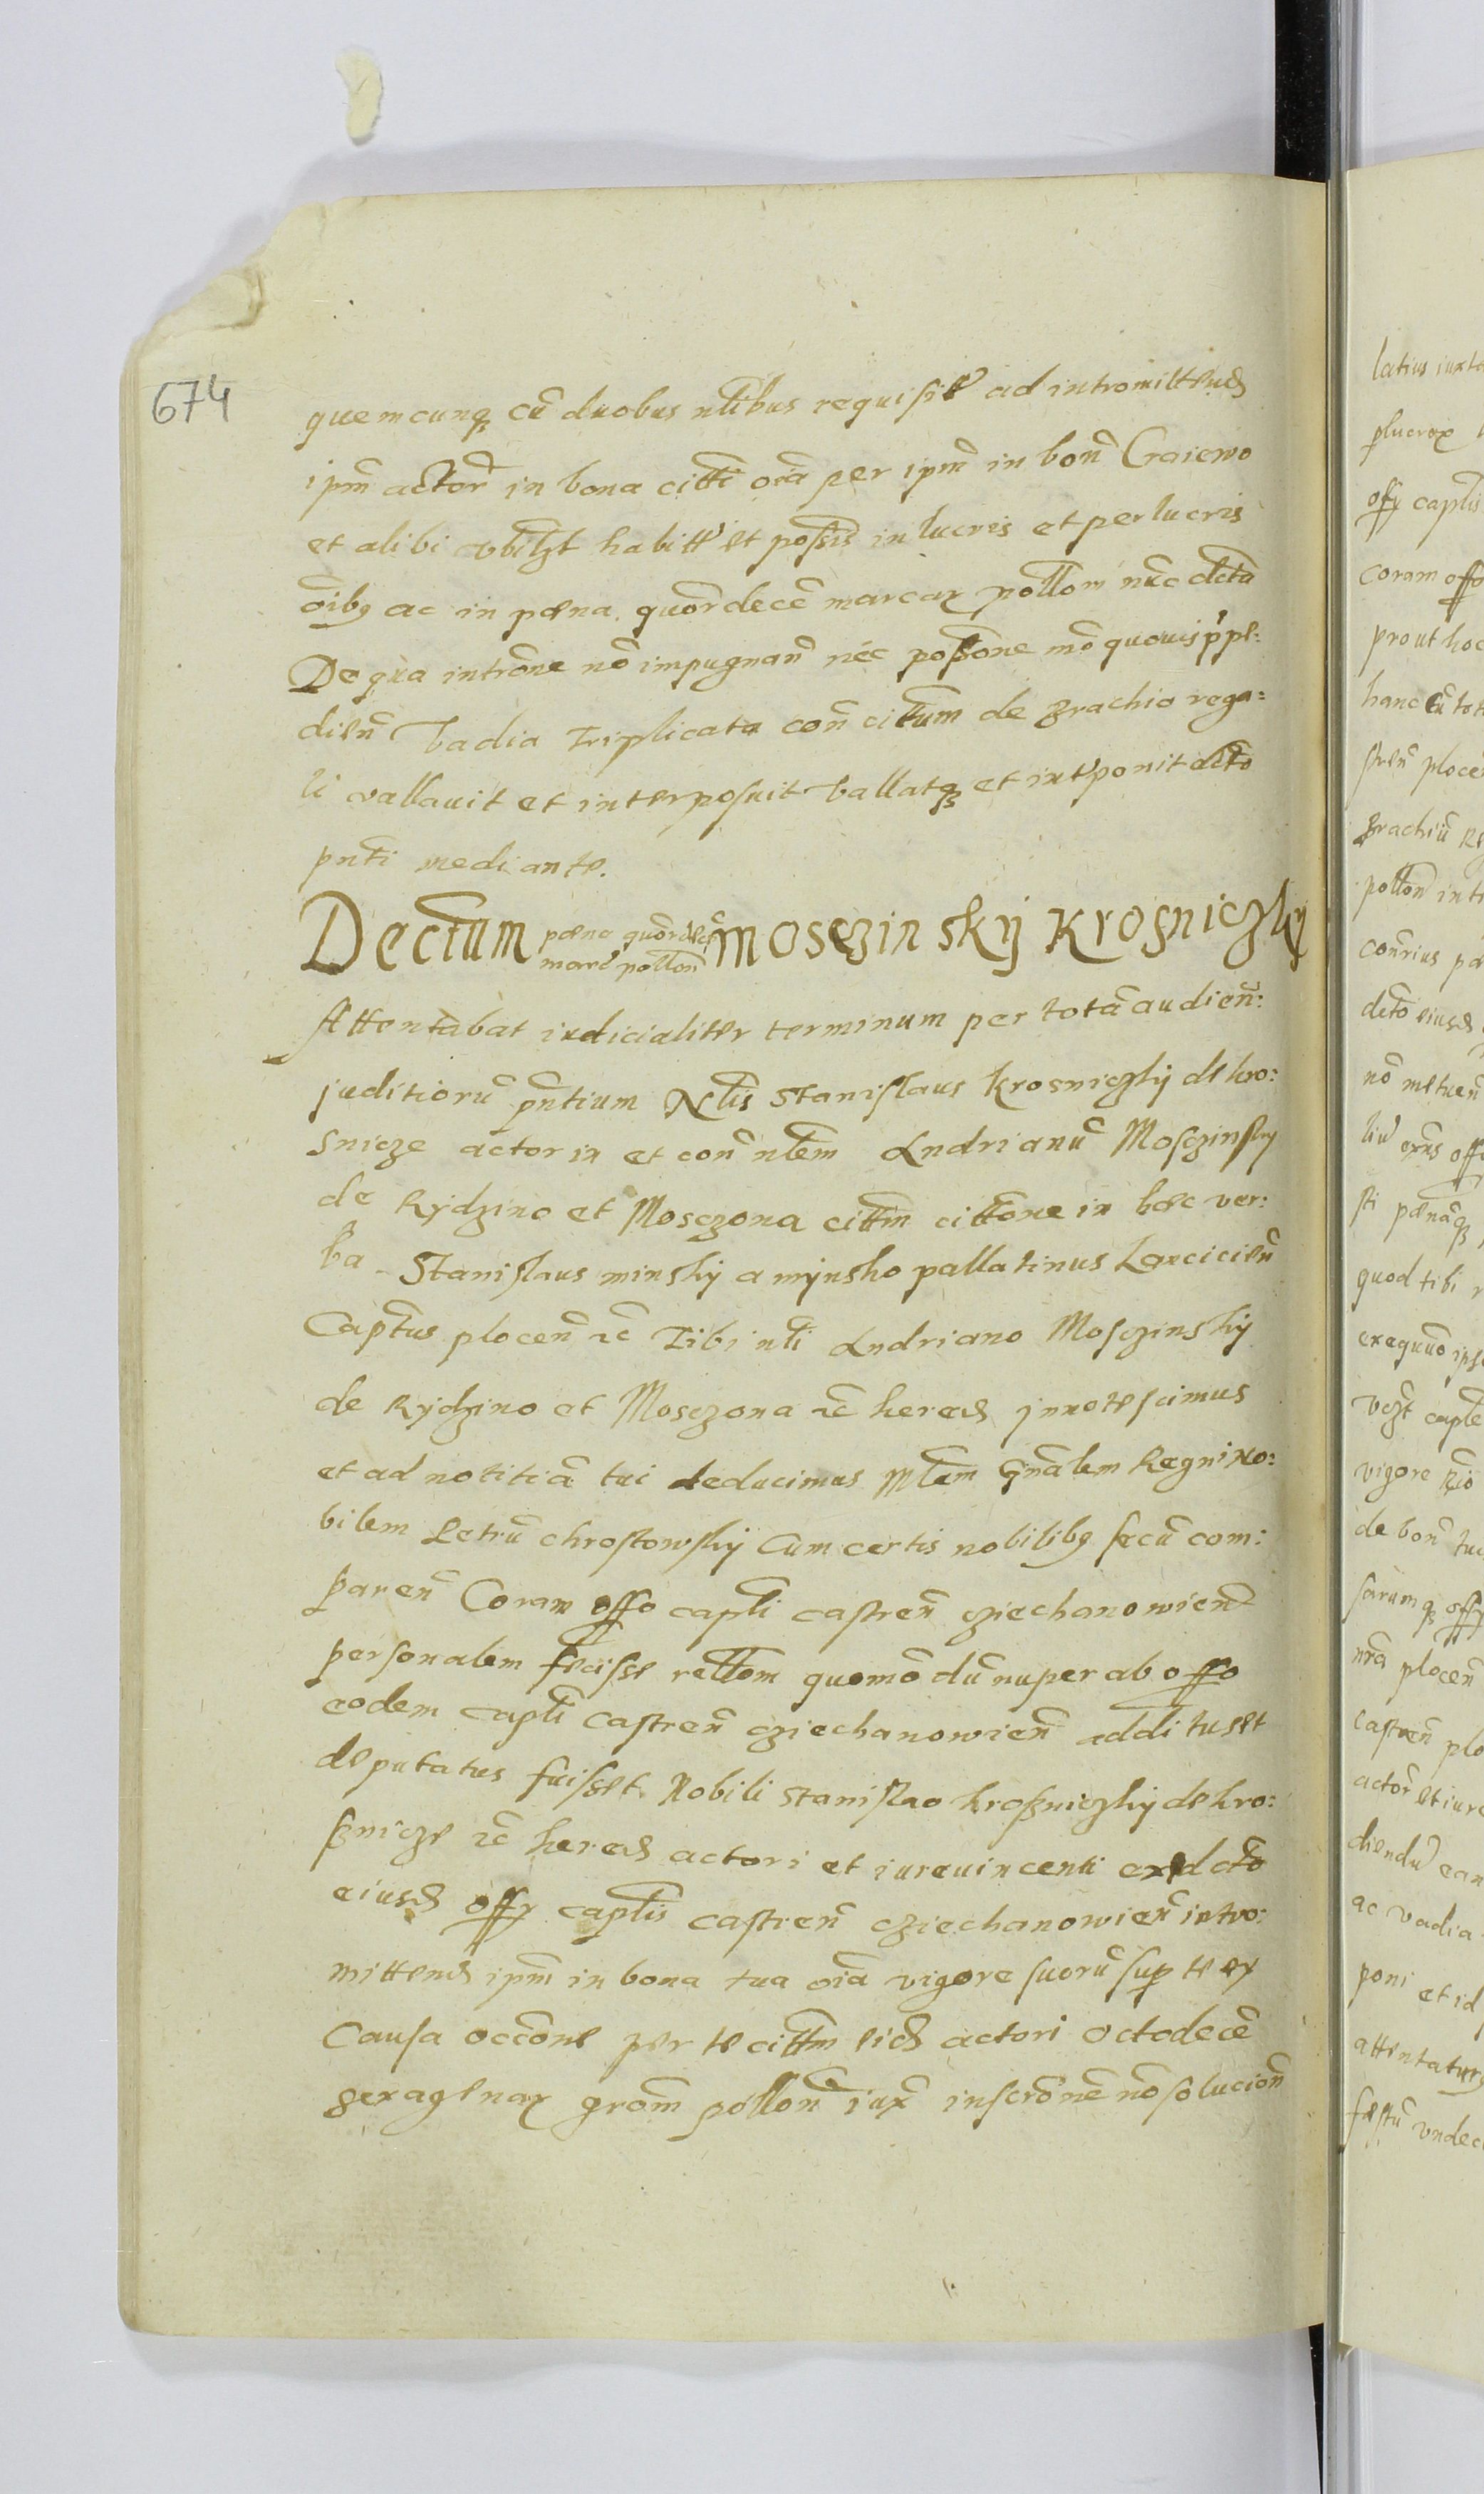 674
quemcunq cū duobus nlibus requisit ad intromittend
ipm̄ actor̄ in bona citti oīa per ipm̄ in bon̄ Graiewo
et alibi vbilʒt habitt et possis in lucris et perlucris
oībq ac in pœna quōrdecē marcaɀ pollom nūc dcta
De qua intrōne nō impugnan̄ nec possone mō quouis p̱pe:
dien̄ Vadia Triplicata con̄ cittum de Brachio rega:
li vallauit et interposuit Vallatq et intponit dcto
pn̄ti mediante.
Dectum pœna quōrdecē marc pollon̄ Mosczinskÿ Krosniczkÿ
Attentabat iudicialiter terminum per totā audien̄:
juditiorū pn̄tium Nlis Stanislaus Krosniczkÿ de kro:
snicze actor in et con̄ nlem Andrianū Mosczinsky
de Rydzino et Mosczona cittm cittōne in hæc ver:
ba Stanislaus minskÿ a mÿnsko pallatinus Lancicien̄
Captus plocen̄ ɀc Tibi nli Andriano Mosczinskÿ
de Rydzino et Mosczona ɀc hered jnnotescimus
et ad notitiā tui deducimus Mlem Gnālem Regni No:
bilem Petrū chrostowskÿ Cum certis nobilibq secū com:
paren̄ Coram offo capli castren̄ cziechanowien̄
personalem fecisse rellom quomō dū nuper ab offo
eodem capli castren̄ cziechanowien̄ additus et
deputatus fuisset Nobili Stanislao krosniczkÿ de kro:
snicze ɀc hered actori et iureuincenti ex dcto
eiusd offy captis castren̄ cziechanowien̄ intro:
mittend ipm̄ in bona tua oīa vigore suorū sup te ex
Causa occōne per te cittm eid actori octodecē
sexagenaɀ grom̄ pollon̄ iux̄ inscrōnē nō solucion̄
latius iuxta
plucrox
offy captis
coram offo
prout hoc
hanc cū tot
Brachiū Re
pollon̄ int
dcto eiusd
nō metuen̄
quod tibi
vigore
de bon̄ tuo
castren̄ plo
actor̄ et iure
ac vadia
poni et id
attentatur